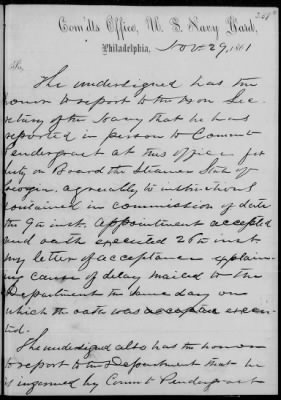 Com'dts Office, U. S. Navy Yard,
Philadelphia, Nov. 29, 1861
Sir,
The undersigned has the
honor to report to the Hon Sec-
retary of the Navy that he has
reported in person to Commt
Pendergrast at this office for
duty on Board the Steamer State of
Georgia. agreeably to instructions
contained in commission of date
the 9th inst. Appointment accepted
and oath executed 26th inst
my letter of acceptance explain-
ing cause of delay mailed to the
Department the same day on
which the oath was acceptae execu-
ted.
The undersigned also has the honor
to report to the Department that he
is informed by Commt Pendergrast